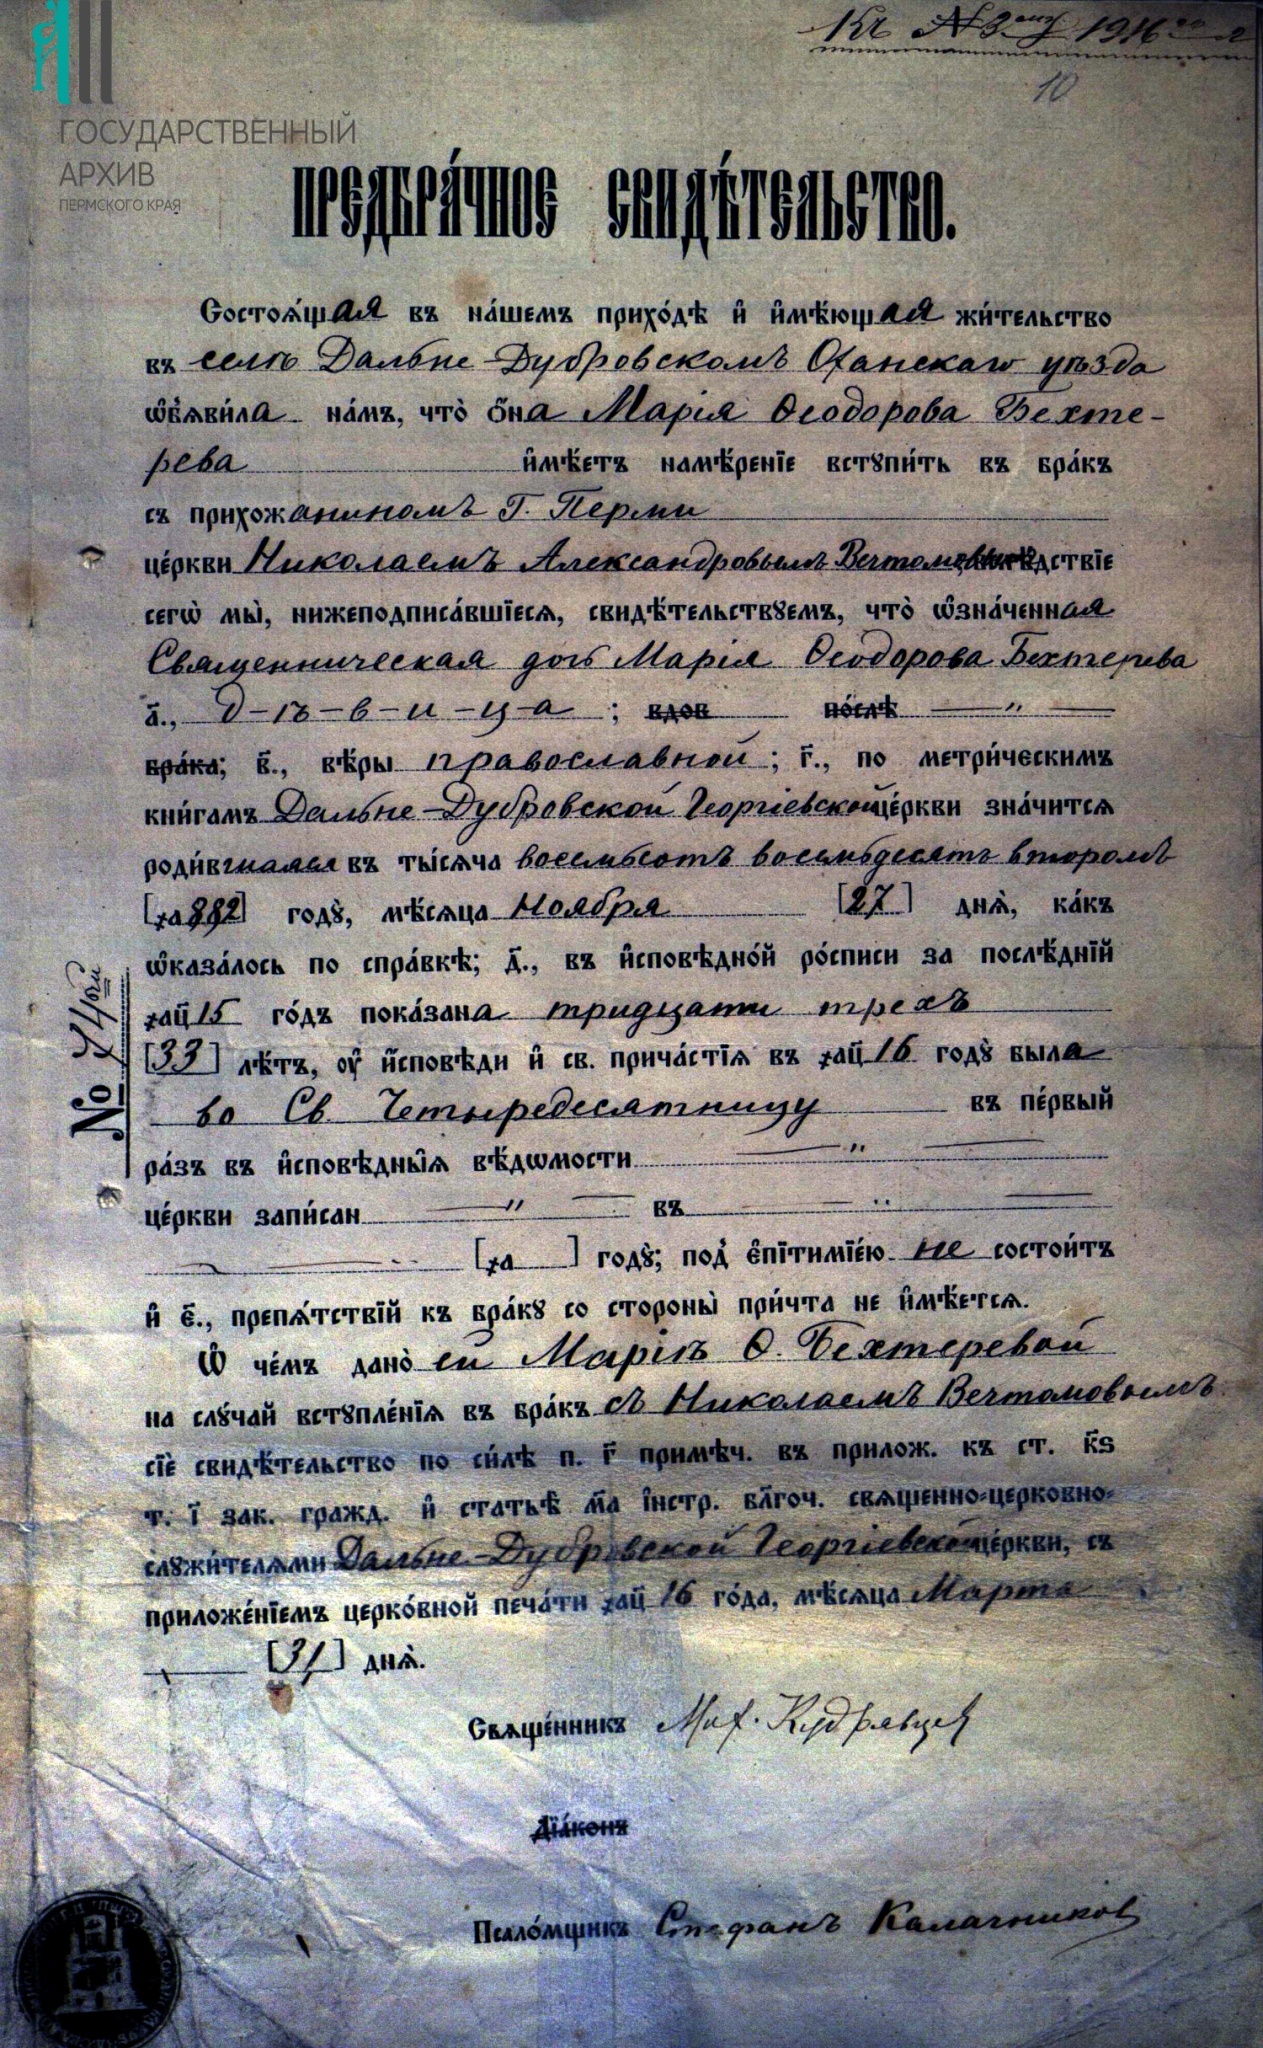 Къ № 3 1916го г
10
ГОСУДАРСТВЕННЫЙ
АРХИВ
ПЕРМСКОГО КРАЯ
ПРЕДБРА́ЧНОЕ СВИДѢ́ТЕЛЬСТВО.
Состоѧ́щая въ на́шемъ прихо́дѣ и҆ и҆мѣ́ющая жи́тельство
въ селѣ Дальне-Дубровскомъ Оханскаго уѣзда
ѡ҆б̾ѧви́ла на́мъ, что̀ ѻ҆́на Марія Ѳеодорова Бехте-
рева и҆мѣ́етъ намѣ́ренїе встꙋпи́ть въ бра́къ
съ прихожаниномъ Г. Перми
це́ркви Николаемъ Александровымъ Вечтомовымъ дствїе
сегѡ̀ мы̀, нижеподписа́вшїесѧ, свидѣ́тельствꙋемъ, что̀ ѡ҆зна́ченная
Священническая дочь Марія Ѳеодорова Бехтерева
а҃., д-ѣ-в-и-ц-а ; вдов по́слѣ "
бра́ка; в҃., вѣ́ры православной; г҃., по метри́ческимъ
кни́гамъ Дальне-Дубровской Георгіевской це́ркви зна́читсѧ
роди́вшаяся въ ты́сѧча восемьсотъ восемьдесятъ второмъ
[҂а882] годꙋ̀, мѣ́сѧца Ноября [27] днѧ̀, ка́къ
ѡ҆каза́лось по спра́вкѣ; д҃., въ и҆сповѣ́дно́й ро́списи за послѣ́днїй
҂ац҃15 го́дъ пока́зана тридцати трехъ
[33] лѣ́тъ, ᲂу҆ и҆́сповѣди и҆ св. прича́стїѧ въ ҂ац҃16 годꙋ̀ была
во Св. Четыредесятницу въ пе́рвый
ра́зъ въ и҆сповѣ́дныѧ вѣ́дѡмости "
це́ркви запи́сан " въ "
[҂а ] годꙋ̀; под̾ є҆пїтимїе́ю не состои́тъ
и҆ є҃., препѧ́тствїй къ бра́кꙋ со стороны̀ при́чта не и҆мѣ́етсѧ.
Ѡ҆ че́мъ дано̀ ей Маріѣ Ѳ. Бехтеревой
на слꙋ́чай встꙋпле́нїѧ въ бра́къ съ Николаемъ Вечтомовымъ
сїѐ свидѣ́тельство по си́лѣ п. г҃ примѣч. въ прилож. къ ст. к҃ѕ
т. і҃ зак. гражд. и҆ статьѣ̀ м҃а і҆нстр. бл҃гоч. свѧще́нно-церковно-
слꙋжи́телями Дальне-Дубровской Георгіевской це́ркви, съ
приложе́нїемъ церко́вной печа́ти ҂ац҃ 16 го́да, мѣ́сѧца Марта
[31] днѧ̀.
Свѧще́нникъ Мих. Кудрявцев
Дїа́конъ
Псало́мщикъ Стефанъ Калачников
№ 74ый